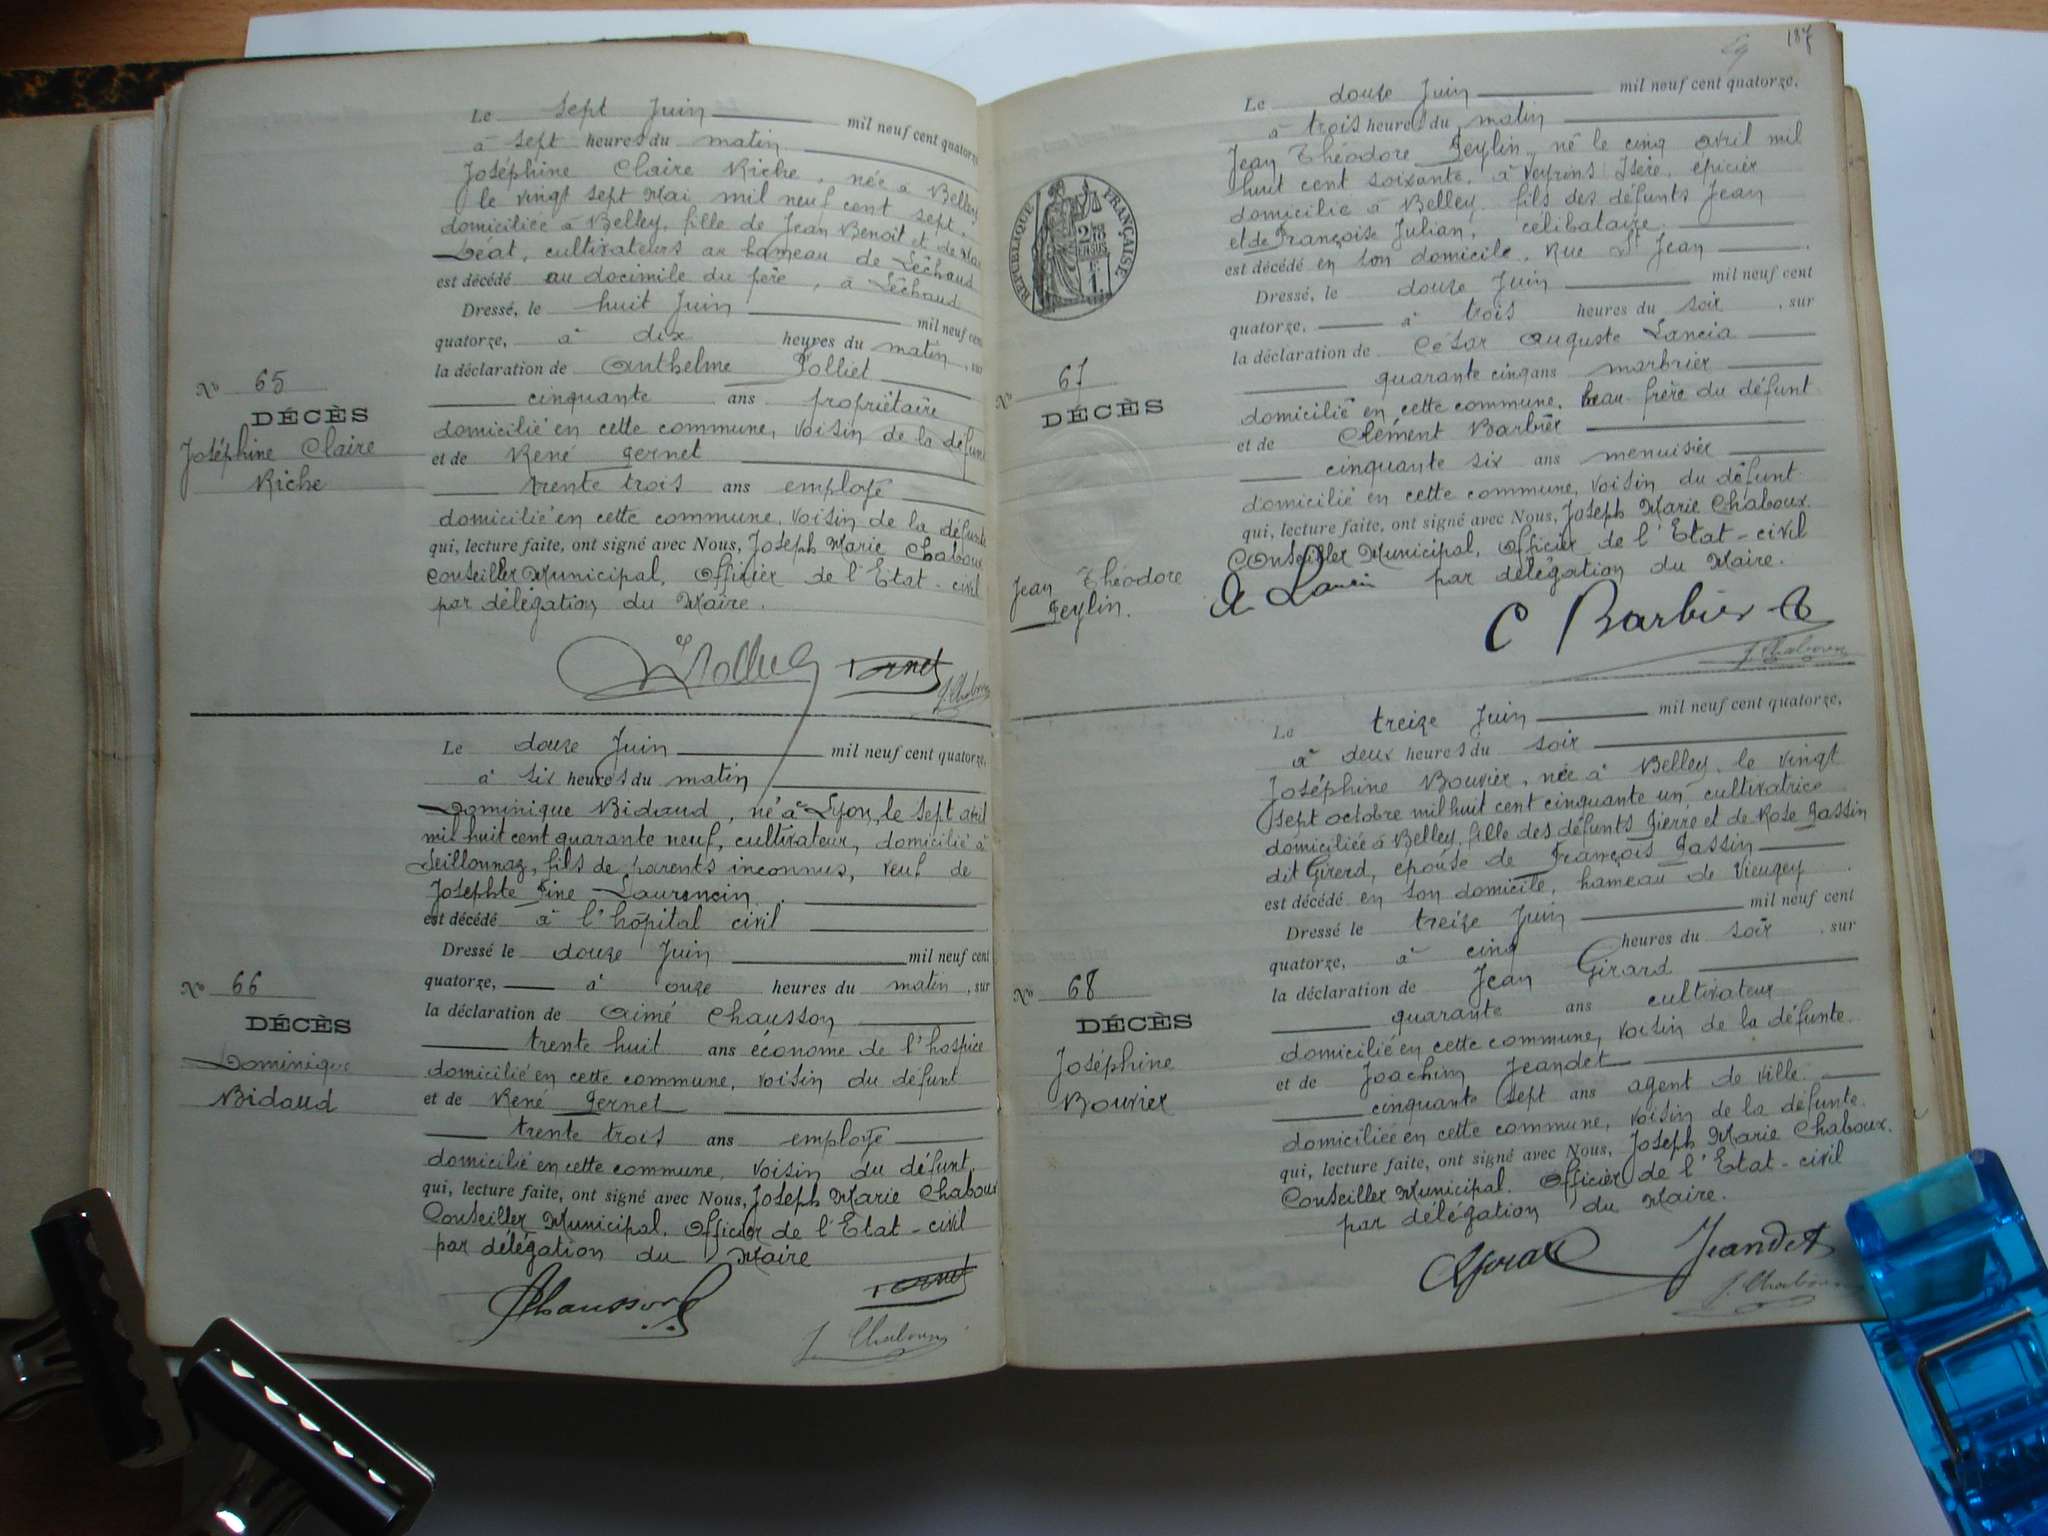 Le sept Juin mil neuf cent quatorze
à sept heures du matin
Joséphine Claire Riche, née à Belley
le vingt sept Mai mil neuf cent sept,
domiciliée à Belley, fille de Jean Benoit et de
Déat, cultivateurs au hameau de Lèchaud
est décédé au docimile du père, à Lèchaud
Dressé, le huit Juin mil neuf cent
quatorze, à dix heures du matin, sur
la déclaration de Anthelme Jolliet
cinquante ans propriétaire
domicilié en cette commune, voisin de la défunte
et de René Pernet
trente trois ans employé
domicilié en cette commune, voisin de la défunte
qui, lecture faite, ont signé avec Nous, Joseph Marie Chaboux
Conseiller Municipal, Officier de l'Etat-civil
par délégation du Maire.
No 65
DÉCÈS
Joséphine Claire
Riche
Pernet
J. Chaboux
Le douze Juin mil neuf cent quatorze,
à six heures du matin
Dominique Bidaud, né à Lyon, le sept avril
mil huit cent quarante neuf, cultivateur, domicilié à
Seillonnaz, fils de parents inconnus, veuf de
Josephte Fine Laurencin.
est décédé à l'hôpital civil
Dressé le douze Juin mil neuf cent
quatorze, à onze heures du matin, sur
la déclaration de Aimé Chausson
trente huit ans économe de l'hospice
domicilié en cette commune, voisin du défunt
et de René Pernet
trente trois ans employé
domicilié en cette commune, voisin du défunt,
qui, lecture faite, ont signé avec Nous, Joseph Marie Chaboux
Conseiller Municipal, Officier de l'Etat-civil
par délégation du Maire
No 66
DÉCÈS
Dominique
Bidaud
Chausson
Pernet
J. Chaboux
187
Le douze Juin mil neuf cent quatorze,
à trois heures du matin
Jean Théodore Peylin, né le cinq avril mil
huit cent soixante, à Veyrins Isère, épicier
domicilié à Belley, fils des défunts Jean
et de Françoise Julian, célibataire
est décédé en son domicile, Rue St Jean
Dressé, le douze Juin mil neuf cent
quatorze, à trois heures du soir, sur
la déclaration de César Auguste Lancia
quarante cinq ans marbrier
domicilié en cette commune, beau-frère du défunt
et de Clément Barbier
cinquante six ans menuisier
domicilié en cette commune, voisin du défunt
qui, lecture faite, ont signé avec Nous, Joseph Marie Chaboux.
Conseiller Municipal, Officier de l'Etat-civil
par délégation du Maire.
RÉPUBLIQUE FRANÇAISE
No 67
DÉCÈS
Jean Théodore
Peylin.
Lancia
C Barbier
J. Chaboux
Le treize Juin mil neuf cent quatorze,
à deux heures du soir
Joséphine Bouvier, née à Belley, le vingt
sept octobre mil huit cent cinquante un, cultivatrice
domiciliée à Belley, fille des défunts Pierre et de Rose Passin
dit Girerd, épouse de François Passin
est décédée en son domicile, hameau de Vieugey.
Dressé le treize Juin mil neuf cent
quatorze, à cinq heures du soir, sur
la déclaration de Jean Girard
quarante ans cultivateur
domicilié en cette commune, voisin de la défunte.
et de Joachim Jeandet
cinquante sept ans agent de ville.
domiciliée en cette commune, voisin de la défunte.
qui, lecture faite, ont signé avec Nous, Joseph Marie Chaboux.
Conseiller Municipal. Officier de l'Etat-civil
par délégation du Maire.
No 68
DÉCÈS
Joséphine
Bouvier
Jeandet
J. Chaboux